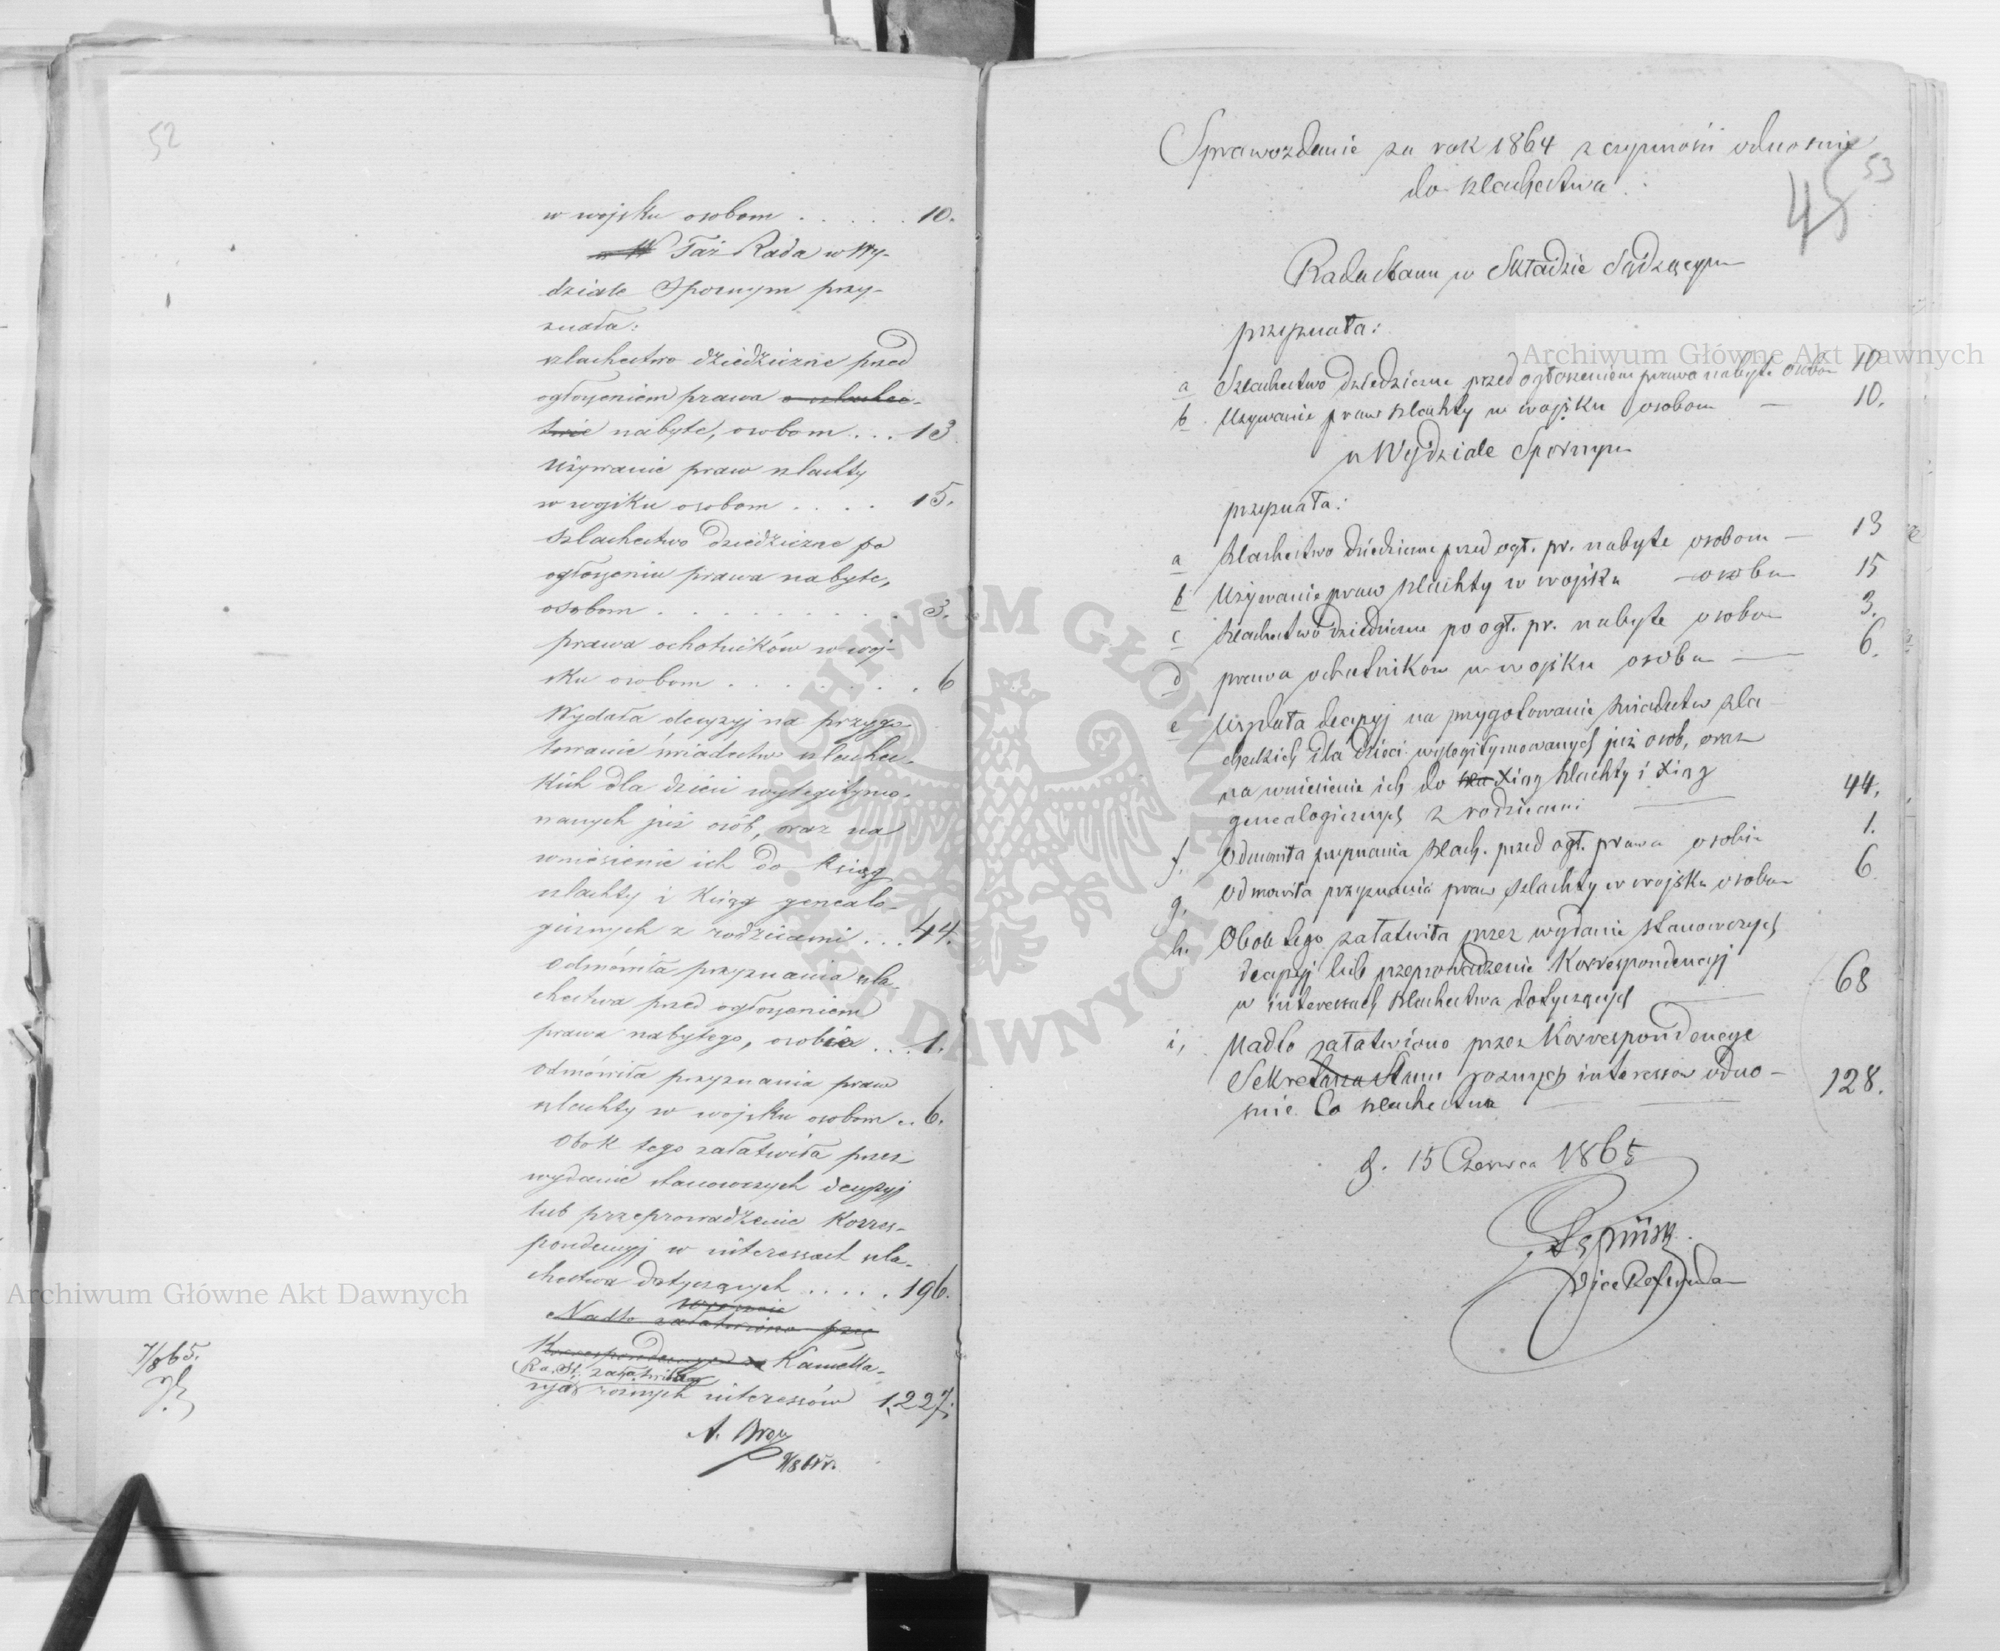 52
w wojsku osobom . . . . . 10.
w W Taż Rada w Wy-
dziale Spornym przy-
znała:
szlachectwo dziedziczne przed
ogłoszeniem prawa o szlachec-
twie nabyte, osobom . . . 13
Używanie praw szlachty
w wojsku osobom . . . . 15.
szlachectwo dziedziczne po
ogłoszeniu prawa nabyte,
osobom . . . . . . . . . . 3.
prawa ochotników w woj-
sku osobom . . . . . . . . 6
Wydała decyzyj na przygo-
towanie świadectw szlachec-
kich dla dzieci wylegitymo-
wanych już osób, oraz na
wniesienie ich do ksiąg
szlachty i Ksiąg genealo-
gicznych z rodzicami . . . 44.
Odmówiła przyznania szla-
chectwa przed ogłoszeniem
prawa nabytego, osobie . . . 1.
Odmówiła przyznania praw
szlachty w wojsku osobom . . 6.
Obok tego załatwiła przez
wydanie stanowczych decyzyj
lub przeprowadzenie Korres-
pondencyj w interessach szla-
chectwa dotyczących . . . . . 196.
Nadto załatwiono przez
Korrespondencye Kancella-
Ra. St. załatwiła
rya rożnych interessów 1,227.
A. Brou
9/8 65 r.
7/8 65.
Archiwum Główne Akt Dawnych
Sprawozdanie za rok 1864 z czynności odnośnie
do szlachectwa
53
45
Rada Stanu w Składzie Sądzącym
przyznała:
a Szlachectwo dziedziczne przed ogłoszeniem prawa nabyte osobom 10
b Używanie praw szlachty w wojsku osobom — 10.
w Wydziale Spornym
przyznała:
a szlachectwo dziedziczne przed ogł. pr. nabyte osobom — 13
b Używanie praw szlachty w wojsku — osobom 15
c szlachectwo dziedziczne po ogł. pr. nabyte osobom 3.
d prawa ochotników w wojsku osobom — 6.
e Wydała decyzyj na przygotowanie świadectw szla-
checkich dla dzieci wylegitymowanych już osob, oraz
na wniesienie ich do szla Xiąg szlachty i Xiąg
genealogicznych z rodzicami — 44.
f. Odmowiła przyznania szlach. przed ogł. prawa osobie 1.
g, Odmowiła przyznania praw szlachty w wojsku osobom 6
h. Obok tego załatwiła przez wydanie stanowczych
decyzyj lub przeprowadzenie Korrespondencyj
w interessach szlachectwa dotyczących — 68
i, Nadto załatwiono przez Korrespondencye
Sekretarza Stanu rożnych interessow odno-
śnie Co szlachectwa — 128.
d. 15 Czerwca 1865
Vice Referenda
Archiwum Główne Akt Dawnych
ARCHIWUM GŁÓWNE AKT DAWNYCH